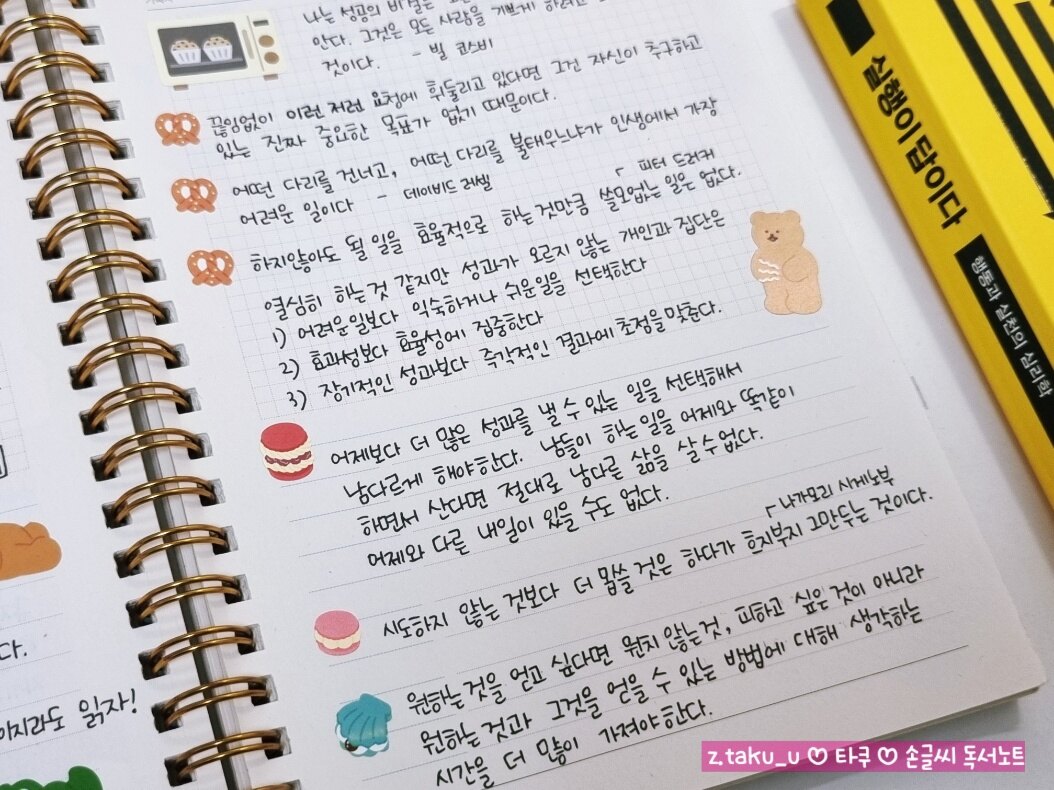 나는 성공의 비결은
안다. 그것은 모든 사람을 기쁘게 하려고
것이다. - 빌 코스비
끊임없이 이런 저런 요청에 휘둘리고 있다면 그건 자신이 추구하고
있는 진짜 중요한 목표가 없기 때문이다.
어떤 다리를 건너고, 어떤 다리를 불태우느냐가 인생에서 가장
어려운 일이다 - 데이비드 러셀
┌ 피터 드러커
하지않아도 될 일을 효율적으로 하는 것만큼 쓸모없는 일은 없다.
열심히 하는 것 같지만 성과가 오르지 않는 개인과 집단은
1) 어려운일보다 익숙하거나 쉬운일을 선택한다
2) 효과성보다 효율성에 집중한다
3) 장기적인 성과보다 즉각적인 결과에 초점을 맞춘다.
어제보다 더 많은 성과를 낼 수 있는 일을 선택해서
남다르게 해야한다. 남들이 하는 일을 어제와 똑같이
하면서 산다면 절대로 남다른 삶을 살 수 없다.
어제와 다른 내일이 있을 수도 없다.
┌ 나가모리 시게노부
시도하지 않는 것보다 더 몹쓸 것은 하다가 흐지부지 그만두는 것이다.
원하는 것을 얻고 싶다면 원치 않는 것, 피하고 싶은 것이 아니라
원하는 것과 그것을 얻을 수 있는 방법에 대해 생각하는
시간을 더 많이 가져야한다.
다.
이지라도 읽자!
실행이 답이다
행동과 실천의 심리학
z.taku_u ♡ 타쿠 ♡ 손글씨 독서노트